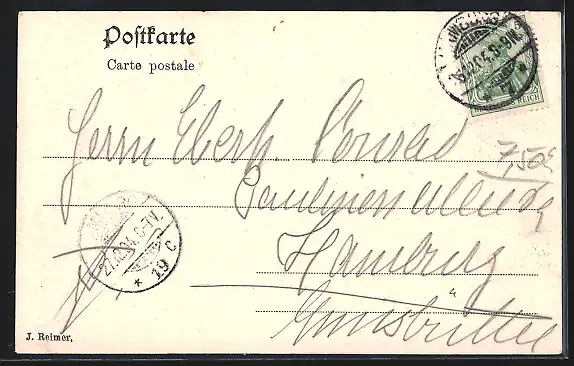 Postkarte
Carte postale
DEUTSCHES REICH
Herrn Eberh. Conrad
7,50€
Hamburg
Eimsbüttel
* 19 C
J. Reimer,